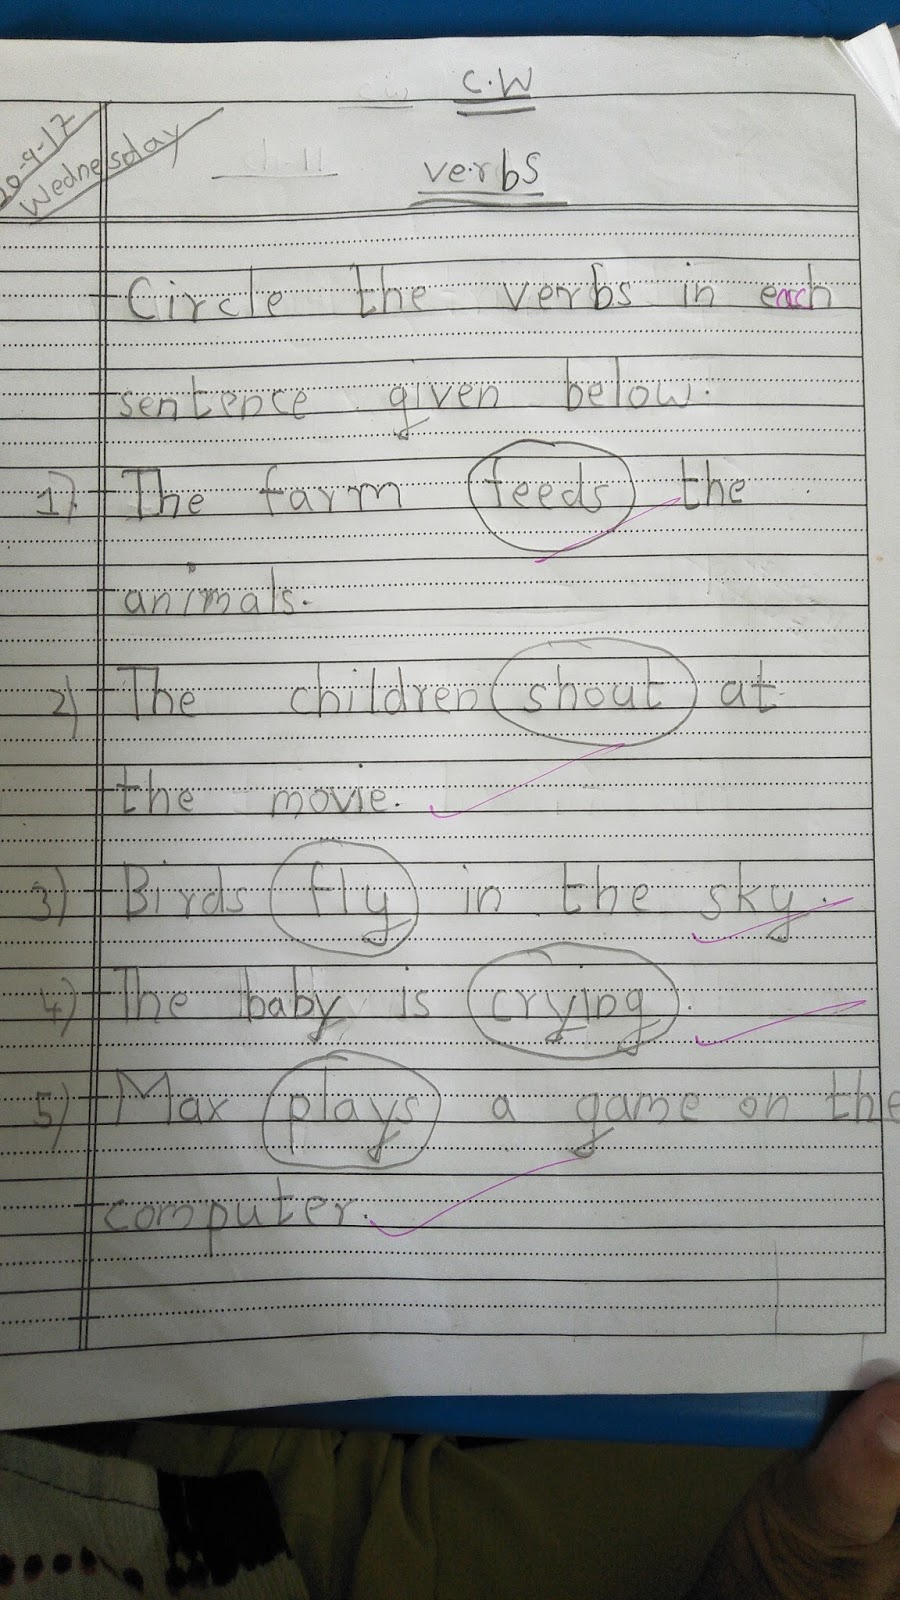 C.W
20-9-17
Wednesday
verbs
Circle the verbs in each
sentence given below.
1) The farm feeds the
animals.
2) The children shout at
the movie.
3) Birds fly in the sky.
4) The baby is crying.
5) Max plays a game on the
computer.